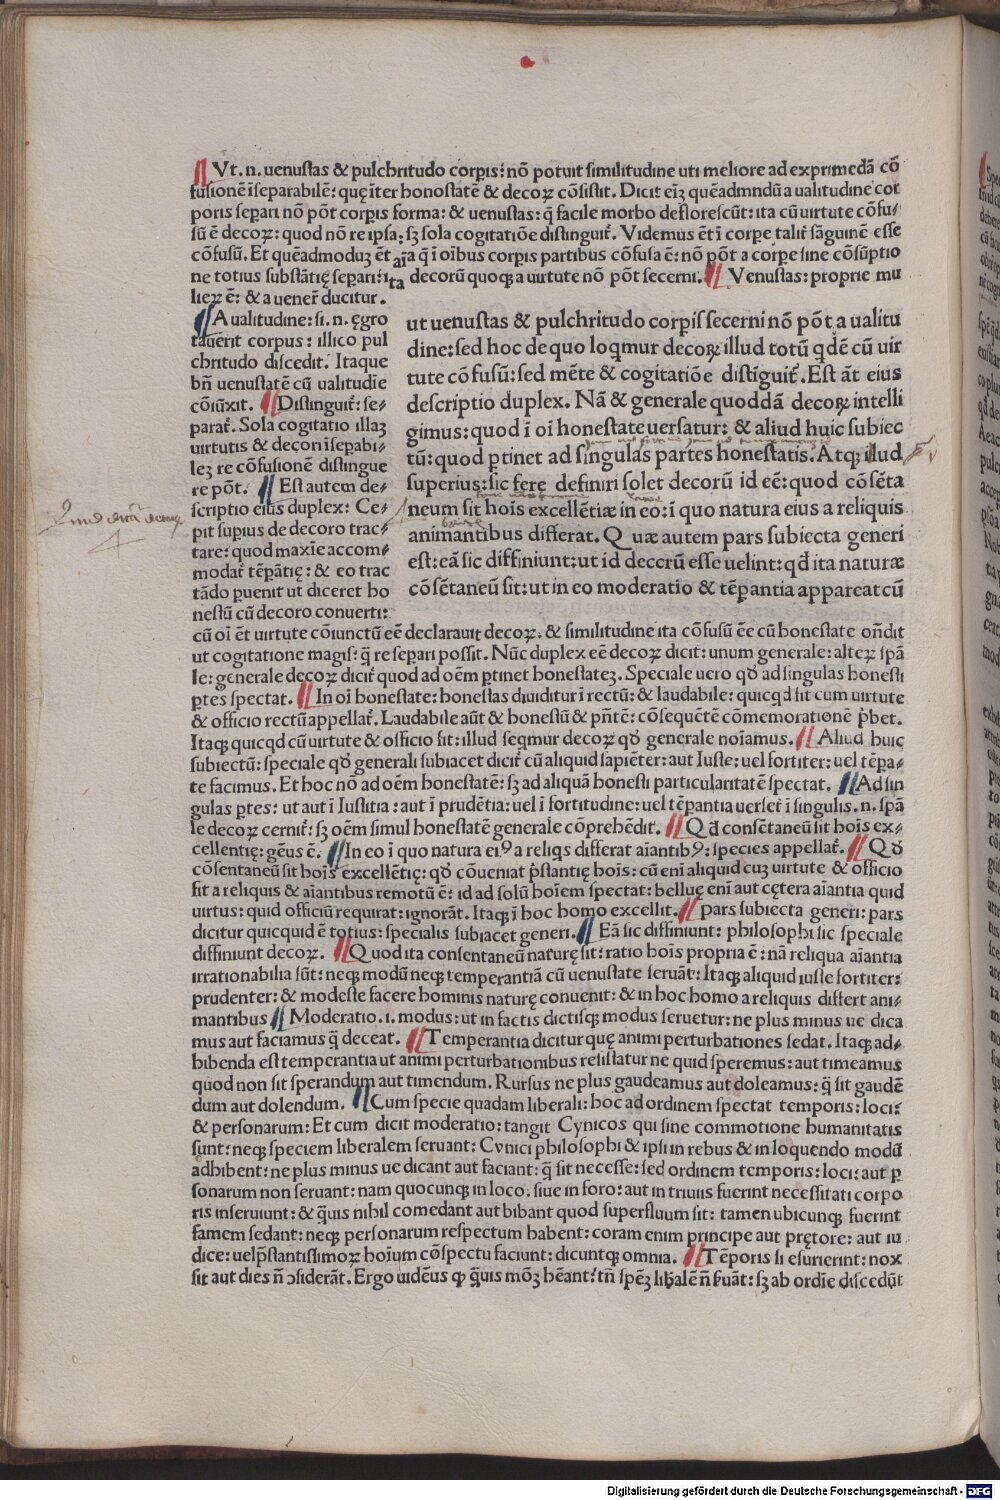 ¶ Vt. n. uenustas & pulchritudo corpis: nō potuit similitudine uti meliore ad exprimedā cō
fusionē īseparabilē: quę īter honostatē & decoꝝ cōsistit. Dicit eīꝫ quēadmndū a ualitudine cor
poris separi nō pōt corpis forma: & uenustas: q̄ facile morbo deflorescūt: ita cū uirtute cōfu⸗
sū ē decoꝝ: quod nō re ipsa: sꝫ sola cogitatiōe distinguit̄. Videmus ēt ī corpe talit̄ sāguinē esse
cōfusū. Et quēadmoduꝫ ēt aīa q̄ ī oībus corpis partibus cōfusa ē: nō pōt a corpe sine cōsūptio
ne totius substātię separi: ita decorū quoqꝫ a uirtute nō pōt secerni. ¶ Venustas: proprie mu
lieꝝ ē: & a uener̄ ducitur.
¶ A ualitudine: si. n. ęgro
tauerit corpus: illico pul
chritudo discedit. Itaque
bn̄ uenustatē cū ualitudīe
cōiūxit. ¶ Distinguit̄: se⸗
parat̄. Sola cogitatio illaꝫ
uirtutis & decori īsepabi⸗
leꝫ re cōfusionē distingue
re pōt. ¶ Est autem de⸗
scriptio eius duplex: Ce⸗
pit supius de decoro trac⸗
tare: quod maxīe accom⸗
modat̄ tēpātię: & eo trac
tādo puenit ut diceret ho
nestū cū decoro conuerti:
ut uenustas & pulchritudo corpis secerni nō pōt a ualitu
dine: sed hoc de quo loqmur decoꝝ illud totū qdē cū uir
tute cō fusū: sed mēte & cogitatiōe distīguit̄. Est āt eius
descriptio duplex. Nā & generale quoddā decoꝝ intelli
gimus: quod ī oī honestate uersatur: & aliud huic subiec
tū: quod ptinet ad singulas partes honestatis. Atqꝫ illud
superius: sic fere definiri solet decorū id eē: quod cōsēta
neum sit hoīs excellētiæ in eo: ī quo natura eius a reliquis
animantibus differat. Quæ autem pars subiecta generi
est: eā sic diffiniunt: ut id deccrū esse uelint: qd ita naturæ
cōsētaneū sit: ut in eo moderatio & tēpantia appareat cū
cū oī ēt uirtute cōiunctū eē declarauit decoꝝ. & similitudine ita cōfusū ēe cū honestate on̄dit
ut cogitatione magis: q̄ re separi possit. Nūc duplex eē decoꝝ dicit: unum generale: alteꝝ spā
le: generale decoꝝ dicit̄ quod ad oēm ptinet honestateꝫ. Speciale uero qd̄ ad singulas honesti
ptes spectat. ¶ In oī honestate: honestas diuiditur ī rectū: & laudabile: quicqd sit cum uirtute
& officio rectū appellat̄. Laudabile aūt & honestū & pn̄tē: cōsequētē cōmemorationē p̄bet.
Itaqꝫ quicqd cū uirtute & officio sit: illud seqmur decoꝝ qd̄ generale noīamus. ¶ Aliud huic
subiectū: speciale qd̄ generali subiacet dicit̄ cū aliquid sapiēter: aut Iuste: uel fortiter: uel tēpa⸗
te facimus. Et hoc nō ad oēm honestatē: sꝫ ad aliquā honesti particularitatē spectat. ¶ Ad sin
gulas ptes: ut aut ī Iustitia: aut ī prudētia: uel ī fortitudine: uel tēpantia uerset̄ ī singulis. n. spā
le decoꝝ cernit̄: sꝫ oēm simul honestatē generale cōprehēdit̄. ¶ Qd consētaneū sit hoīs ex⸗
cellentię: gēus ē. ¶ In eo ī quo natura eiꝰ a reliqs differat aīantibꝰ: species appellat̄. ¶ Qd̄
cōsentaneū sit hoīs excellētię: qd̄ cōueniat p̄stantię hoīs: cū enī aliquid cuꝫ uirtute & officio
fit a reliquis & aīantibus remotū ē: id ad solū hoīem spectat: belluę enī aut cętera aīantia quid
uirtus: quid officiū requirat: ignorāt. Itaqꝫ ī hoc homo excellit. ¶ pars subiecta generi: pars
dicitur quicquid ē totius: specialis subiacet generi. ¶ Eā sic diffiniunt: philosophi sic speciale
diffiniunt decoꝝ. ¶ Quod ita consentaneū naturę sit: ratio hoīs propria ē: nā reliqua aīantia
irrationabilia sūt: neqꝫ modū neqꝫ temperantiā cū uenustate seruāt: Itaqꝫ aliquid iuste fortiter:
prudenter: & modeste facere hominis naturę conuenit: & in hoc homo a reliquis differt ani⸗
mantibus ¶ Moderatio. i. modus: ut in factis dictisqꝫ modus seruetur: ne plus minus ue dica
mus aut faciamus q̄ deceat. ¶ Temperantia dicitur quę animi perturbationes sedat. Itaqꝫ ad⸗
hibenda est temperantia ut animi perturbationibus resistatur ne quid speremus: aut timeamus
quod non sit sperandum aut timendum. Rursus ne plus gaudeamus aut doleamus: q̄ sit gaudē
dum aut dolendum. ¶ Cum specie quadam liberali: hoc ad ordinem spectat temporis: loci:
& personarum: Et cum dicit moderatio: tangit Cynicos qui sine commotione humanitatis
sunt: neqꝫ speciem liberalem seruant: Cynici philosophi & ipsi in rebus & in loquendo modū
adhibent: ne plus minus ue dicant aut faciant: q̄ sit necesse: sed ordinem temporis: loci: aut p
sonarum non seruant: nam quocunqꝫ in loco. siue in foro: aut in triuiis fuerint necessitati corpo
ris inseruiunt: & q̄uis nihil comedant aut bibant quod superfluum sit: tamen ubicunqꝫ fuerint
famem sedant: neqꝫ personarum respectum habent: coram enim principe aut prętore: aut iu
dice: uel p̄stantissimoꝝ hoīum cōspectu faciunt: dicuntqꝫ omnia. ¶ Tēporis si esurierint: nox
sit aut dies n̄ ↄsiderāt. Ergo uidēus ꝙ q̄uis mōꝫ hēant: tn̄ spēꝫ lib̄alē n̄ ẜuāt: sꝫ ab ordīe discedūt
Digitalisierung gefördert durch die Deutsche Forschungsgemeinschaft - DFG